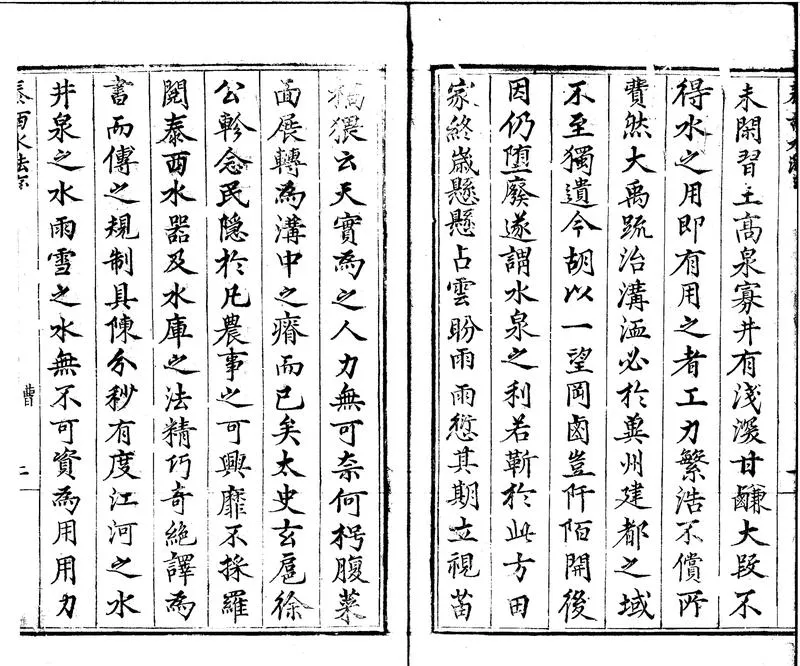 未閑習土高泉寡井有淺深甘鹻大段不
得水之用即有用之者工力繁浩不償所
費然大禹疏治溝洫必於冀州建都之域
不至獨遺今胡以一望岡鹵豈阡陌開後
因仍墮廢遂謂水泉之利若靳於此方田
家終歲懸懸占雲盼雨雨愆其期立視苗
稿猥云天實為之人力無可奈何枵腹菜
面展轉為溝中之瘠而已矣太史玄扈徐
公軫念民隱於凡農事之可興靡不採羅
閱泰西水器及水庫之法精巧奇絕譯為
書而傳之規制具陳分秒有度江河之水
井泉之水雨雪之水無不可資為用用力
泰西水法
曹
二